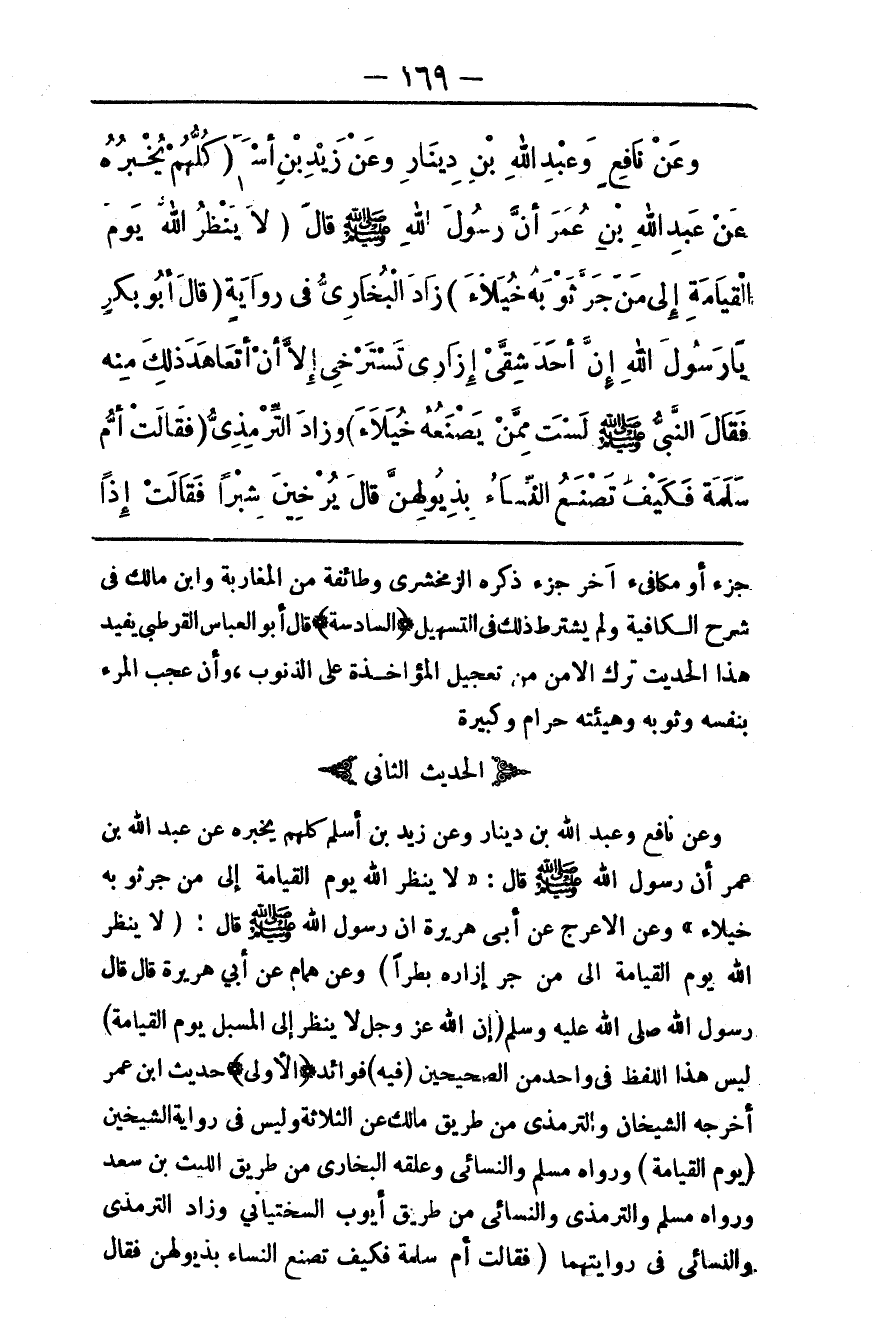 — ١٦٩ —
وعَنْ نَافِعٍ وَعبْدِ اللهِ بْنِ دِينَارِ وعَنْ زَيْدِ بْنِ أسْلَمَ (كُلُّهُمْ يُخْبِرُهُ
عَنْ عَبدِ اللهِ بْنِ عُمَرَ أنَّ رسُولَ اللهِ ﷺ قالَ ( لاَ يَنْظُرُ اللهُ يَومَ
الْقيَامَةِ إلى مَنْ جَرَّ ثَوْبَهُ خُيَلاَءَ ) زَادَ الْبُخَارِىُّ فى روايَةٍ ( قالَ أبُو بكرٍ
يَا رَسُولَ اللهِ إنَّ أحَدَ شِقَّىْ إزَارِى تَسْتَرْخِى إلاَّ أنْ أتَعَاهَدَ ذلِكَ مِنه
فقَالَ النَّبىُّ ﷺ لَسْتَ مِمَّنْ يَصْنَعُهُ خُيَلَاءَ) وزادَ التِّرْمِذِىُّ (فقَالَتْ أمُّ
سَلَمَة فَكَيْفَ تَصْنَعُ النِّسَاءُ بِذيُولِهِنَّ قالَ يُرْخِينَ شِبْرًا فَقَالَتْ إذًا
جزء أو مكافىء آخر جزء ذكره الزمخشرى وطائفة من المغاربة وابن مالك فى
شرح الكافية ولم يشترط ذلك فى التسهيل ﴿السادسة﴾ قال أبو العباس القرطبي يفيد
هذا الحديث ترك الامن من تعجيل المؤاخذة على الذنوب ، وأن عجب المرء
بنفسه وثوبه وهيئته حرام وكبيرة
الحديث الثانى
وعن نافع وعبد الله بن دينار وعن زيد بن أسلم كلهم يخبره عن عبد الله بن
عمر أن رسول الله ﷺ قال : « لا ينظر الله يوم القيامة إلى من جر ثوبه
خيلاء » وعن الاعرج عن أبى هريرة ان رسول الله ﷺ قال : ( لا ينظر
الله يوم القيامة الى من جر إزاره بطراً ) وعن همام عن أبي هريرة قال قال
رسول الله صلى الله عليه وسلم (إن الله عز وجل لا ينظر إلى المسبل يوم القيامة)
ليس هذا اللفظ فى واحد من الصحيحين (فيه) فوائد ﴿الأولى﴾ حديث ابن عمر
أخرجه الشيخان والترمذى من طريق مالك عن الثلاثة وليس فى رواية الشيخين
(يوم القيامة ) ورواه مسلم والنسائى وعلقه البخارى من طريق الليث بن سعد
ورواه مسلم والترمذى والنسائى من طريق أيوب السختياني وزاد الترمذى
والنسائى فى روايتهما ( فقالت أم سلمة فكيف تصنع النساء بذيولهن فقال